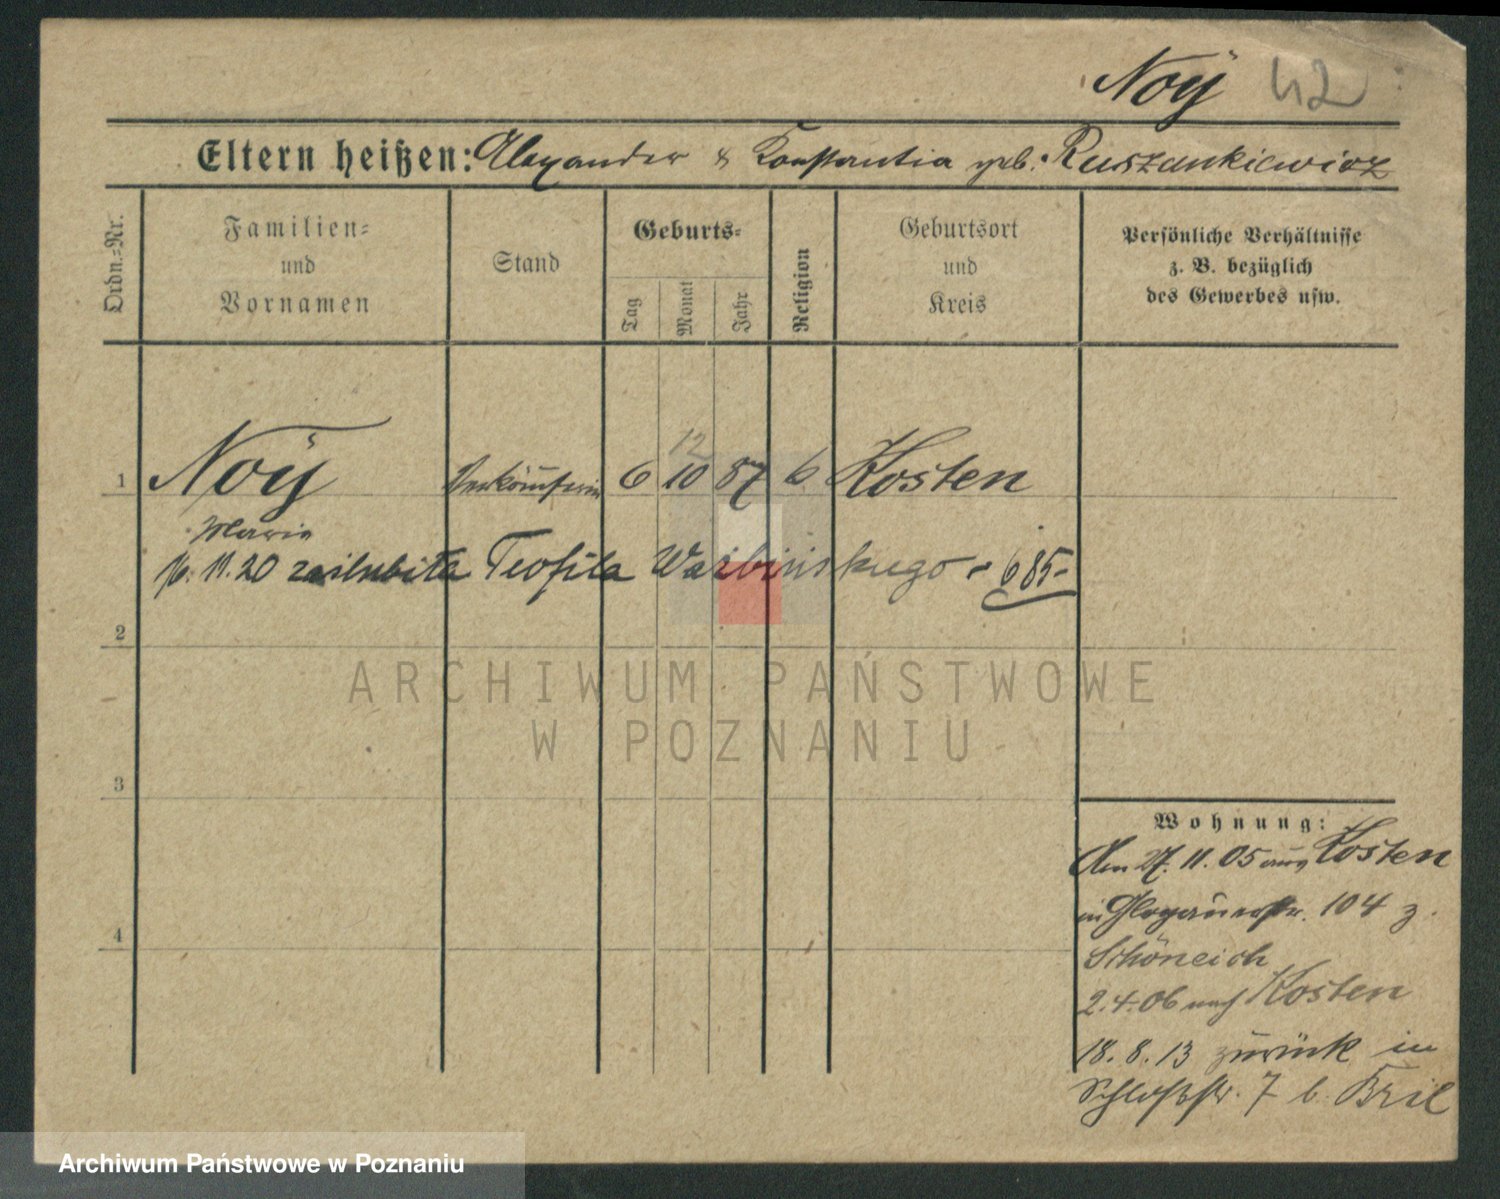 Noÿ 42
Eltern heißen: Alexander & Konstantia geb. Ruszankiewicz
Ordn.=Nr.
Familien=
und
Vornamen
Stand
Geburts=
Tag
Monat
Jahr
Religion
Geburtsort
und
Kreis
Persönliche Verhältnisse
z. B. bezüglich
des Gewerbes usw.
12
1 Noÿ Verkäuferin 6 10 87 Kosten
Maria
11.20 zaślubiła Teofila Warbińskiego 85
2
3
4
Wohnung:
Am 27.11.05 aus Kosten
in Glogauerstr. 104 z.
Schöneich
2.4.06 nach Kosten
18.8.13 zurück in
Schloßstr. 7 b. Bril
ARCHIWUM PAŃSTWOWE
W POZNANIU
Archiwum Państwowe w Poznaniu